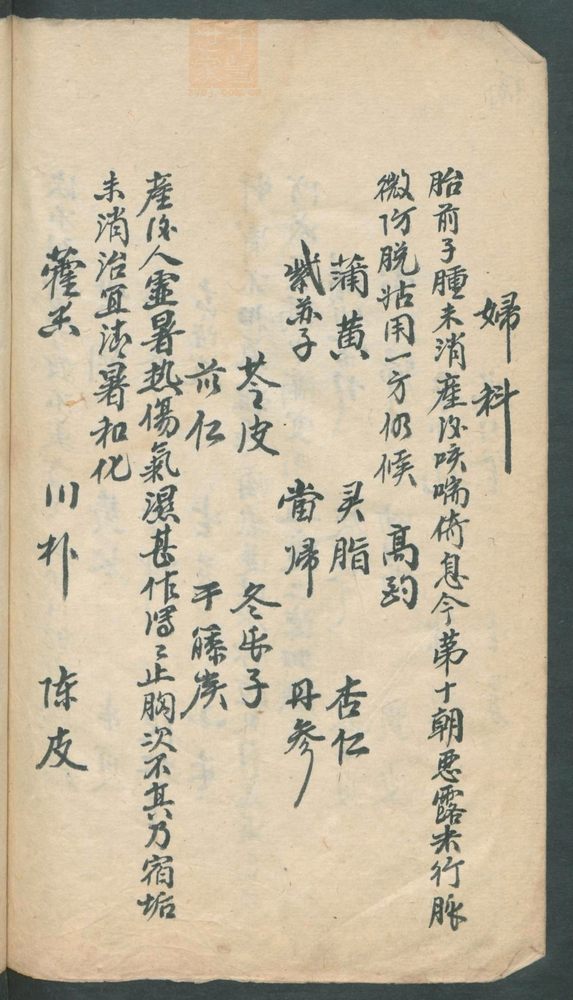 婦科
胎前子腫未消產後咳喘倚息今第十朝惡露未行脉
微防脱姑用一方仍候 高
蒲黄 灵脂 杏仁
紫苏子 當歸 丹參
苓皮 冬瓜子
苡仁 干藤
產後人 暑熱傷氣濕甚作瀉瀉止胸次不 乃宿垢
未消治宜清暑和化
藿 川朴 陈皮